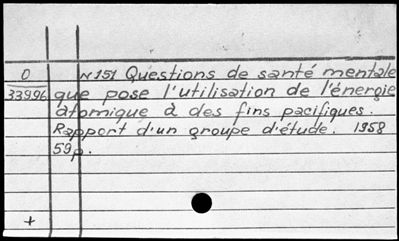 O N151 Questions de santé mentale
33996 que pose l'utilisation de l'énergie
atomique à des fins pacifiques.
Rapport d'un groupe d'étude. 1958
59p.
+